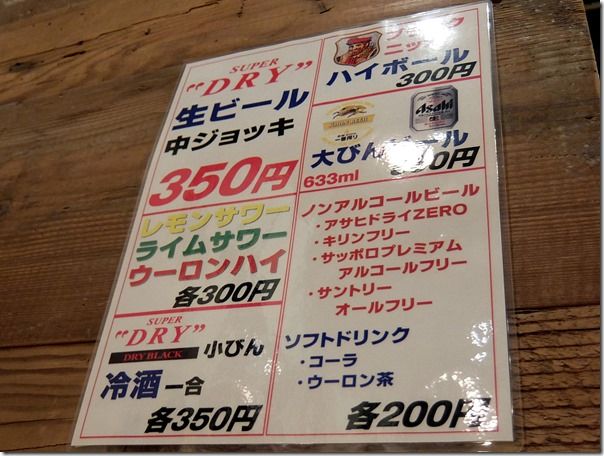 SUPER
"DRY"
生ビール
中ジョッキ
350円
レモンサワー
ライムサワー
ウーロンハイ
各300円
SUPER
"DRY"
DRY BLACK 小びん
冷酒 一合
各350円
ニッ
ハイボール
300円
一番搾り
Asahi
大びん ール
633ml 0円
ノンアルコールビール
・アサヒドライZERO
・キリンフリー
・サッポロプレミアム
アルコールフリー
・サントリー
オールフリー
ソフトドリンク
・コーラ
・ウーロン茶
各200円